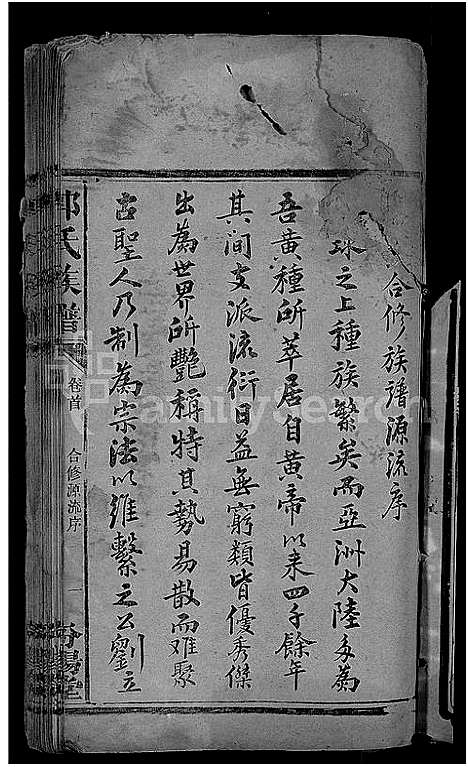 合修族譜源流序
球之上種族繁矣而亞洲大陸多為
吾黃種所萃居自黃帝以来四千餘年
其间支派流衍日益無窮類皆優秀傑
出為世界所艷稱特其勢易散而难聚
古聖人乃制為宗法以維繫之公劉立
氏族譜
卷首
合修源流序
一
堂
FamilySearch